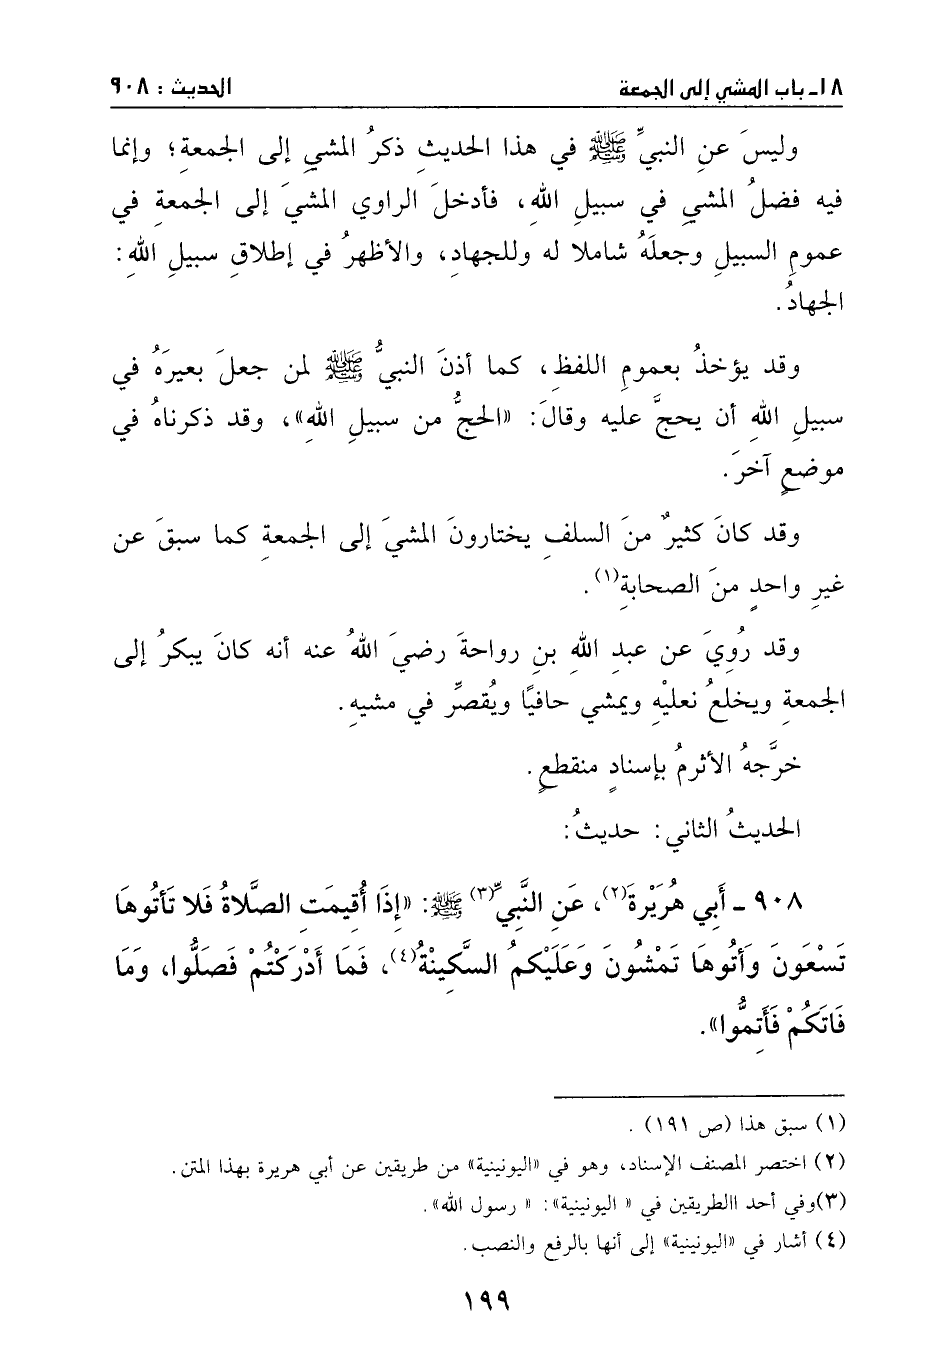 ١٨ـ باب المشي إلى الجمعة
الحديث : ٩٠٨
وليسَ عنِ النبيِّ ﷺ في هذا الحديثِ ذكرُ المشيِ إلى الجمعةِ؛ وإنما
فيه فضلُ المشيِ في سبيلِ اللهِ، فأدخلَ الراوي المشيَ إلى الجمعةِ في
عمومِ السبيلِ وجعلَهُ شاملا له وللجهادِ، والأظهرُ في إطلاقِ سبيلِ اللهِ:
الجهادُ.
وقد يؤخذُ بعمومِ اللفظِ، كما أذنَ النبيُّ ﷺ لمن جعلَ بعيرَهُ في
سبيلِ اللهِ أن يحجَّ عليه وقالَ: «الحجُّ من سبيلِ اللهِ»، وقد ذكرناهُ في
موضعٍ آخرَ.
وقد كانَ كثيرٌ منَ السلفِ يختارونَ المشيَ إلى الجمعةِ كما سبقَ عن
غيرِ واحدٍ منَ الصحابةِ(١).
وقد رُوِيَ عن عبدِ اللهِ بنِ رواحةَ رضيَ اللهُ عنه أنه كانَ يبكرُ إلى
الجمعةِ ويخلعُ نعليْهِ ويمشي حافيًا ويُقصِّر في مشيهِ.
خرَّجهُ الأثرمُ بإسنادٍ منقطعٍ.
الحديثُ الثاني: حديثُ:
٩٠٨ ـ أَبِي هُرَيْرةَ(٢)، عَنِ النَّبِيِّ(٣) ﷺ: «إِذَا أُقِيمَت الصَّلاةُ فَلا تَأتُوهَا
تَسْعَونَ وَأتُوهَا تَمْشُونَ وَعَلَيْكمُ السَّكِينْةُ(٤)، فَمَا أَدْرَكْتُمْ فَصَلُّوا، وَمَا
فَاتَكُمْ فَأَتِمُّوا».
(١) سبق هذا (ص ١٩١) .
(٢) اختصر المصنف الإسناد، وهو في «اليونينية» من طريقين عن أبي هريرة بهذا المتن.
(٣)وفي أحد االطريقين في « اليونينية»: « رسول الله».
(٤) أشار في «اليونينية» إلى أنها بالرفع والنصب.
١٩٩